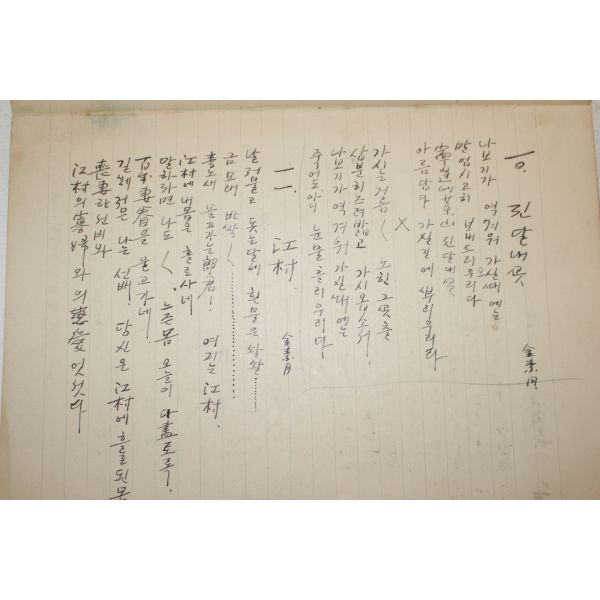 一○. 진달내꽃
金素月
나보기가 역겨워 가실때에는
말업시고히 보내드리우리다
寧邊에藥山 진달내꽃
아름답다 가실길에 뿌리우리다
×
가시는거름〱 노힌 그꼿츨
삽분히즈려밥고 가시옵소서
나보기가 역겨워 가실때에는
죽어도아니 눈물흘리우리다
一一. 江村.
金素月
날저물고 돗는달에 흰물은 솰솰
금모며 반짝〱……………
靑노새 몰고가는郞君! 여긔는江村.
江村에내몸은 홀로사네
말하자면 나도〱, 느즌봄 오늘이 다盡토록,
百年妻眷을 울고가네!
길쎄 저믄 나는 선배! 당신은 江村에 홀로된몸
喪妻한선비와
江村의寡婦와의戀愛엿섯다